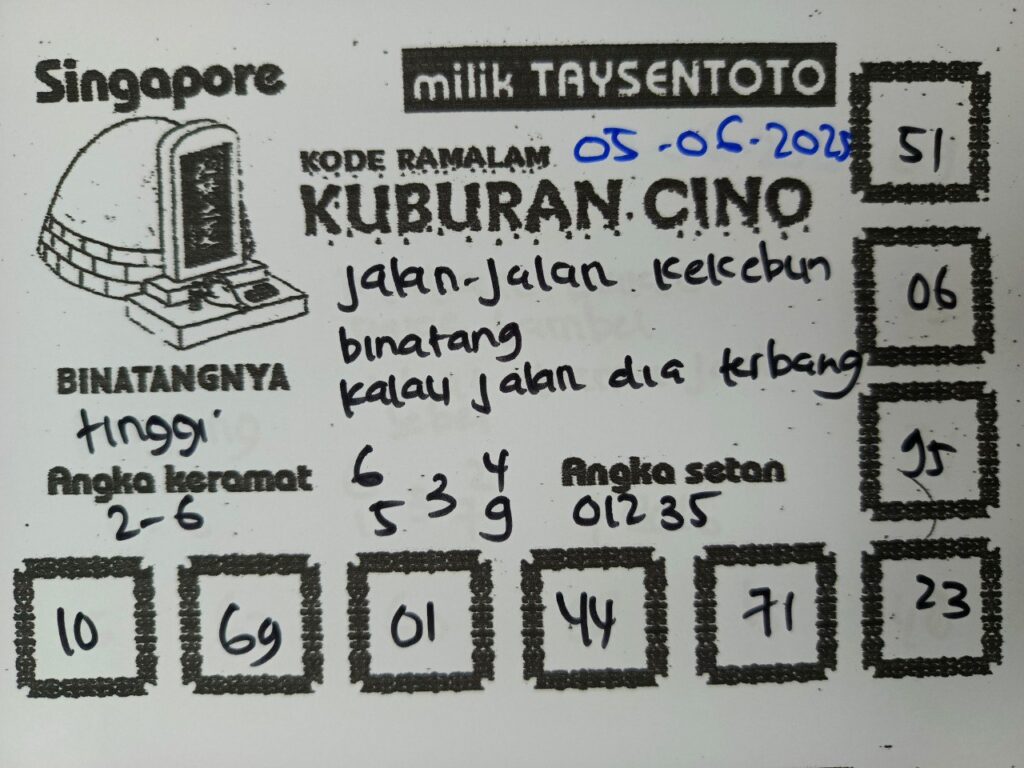 Singapore
milik TAYSENTOTO
KODE RAMALAM 05-06-2025
KUBURAN CINO
jalan-jalan kekebun
binatang
kalau jalan dia terbang
BINATANGNYA
tinggi
Angka keramat
2-6
6 4
5 3 9
Angka setan
01235
51
06
95
23
10 69 01 44 71